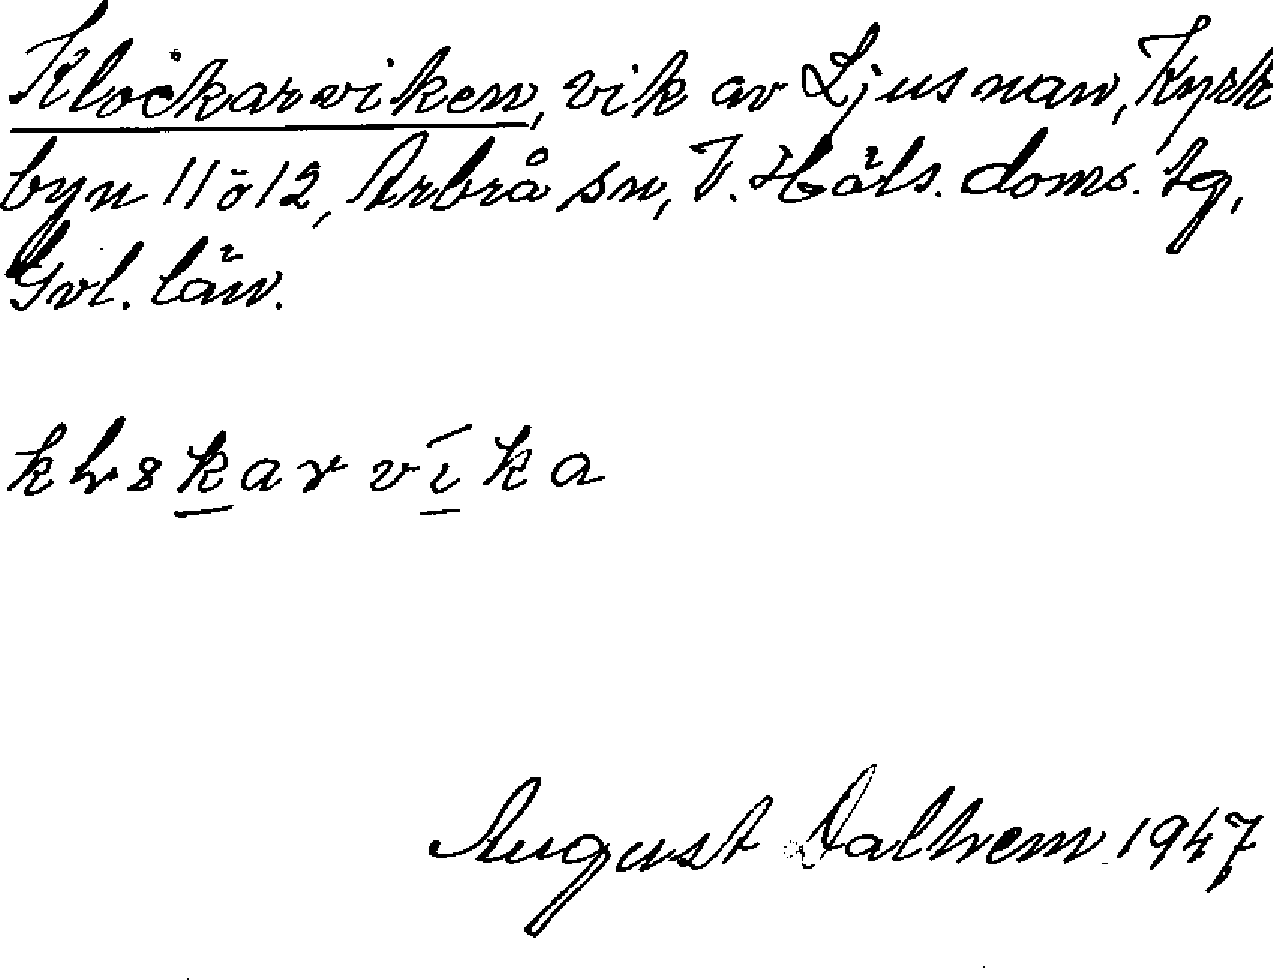 Klockarviken, vik av Ljusnan, Kyrk
byn 11 o 12, Arbrå sn, V. Häls. doms. tg,
Gvl. län.
August Dalhem 1947